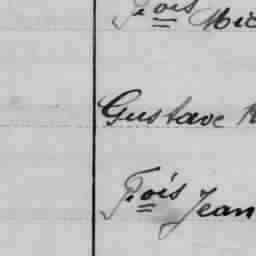 F.ois Mic
Gustave
F.ois Jean